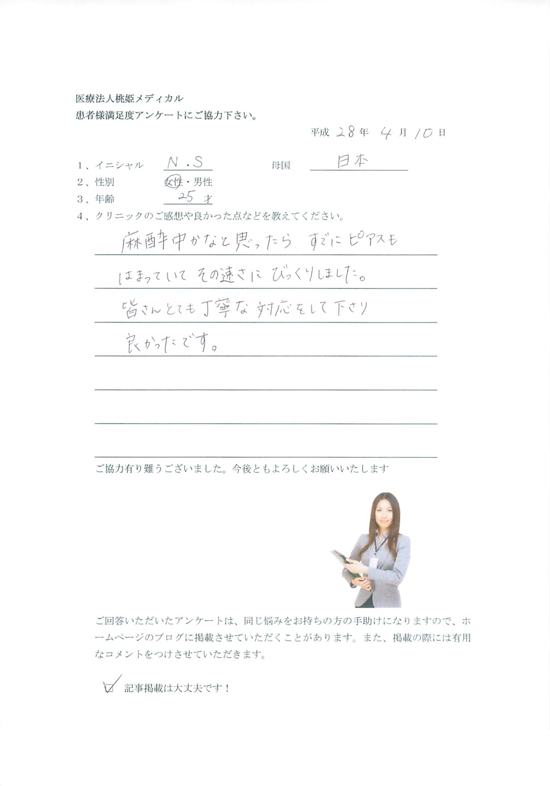 医療法人桃姫メディカル
患者様満足度アンケートにご協力下さい。
平成 28 年 4 月 10 日
1、イニシャル N.S 母国 日本
2、性別 女性・男性
3、年齢 25 才
4、クリニックのご感想や良かった点などを教えてください。
麻酔中かなと思ったら すでにピアスも
はまっていて その速さに びっくりしました。
皆さんとても丁寧な 対応をして下さり
良かったです。
ご協力有り難うございました。今後ともよろしくお願いいたします
ご回答いただいたアンケートは、同じ悩みをお持ちの方の手助けになりますので、ホ
ームページのブログに掲載させていただくことがあります。また、掲載の際には有用
なコメントをつけさせていただきます。
記事掲載は大丈夫です！